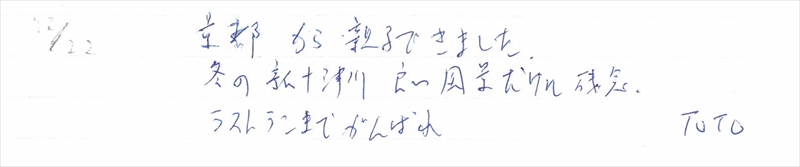 12/22 京都から親子できました。
冬の新十津川 良い風景だけれど残念。
ラストランまでがんばれ TOTO